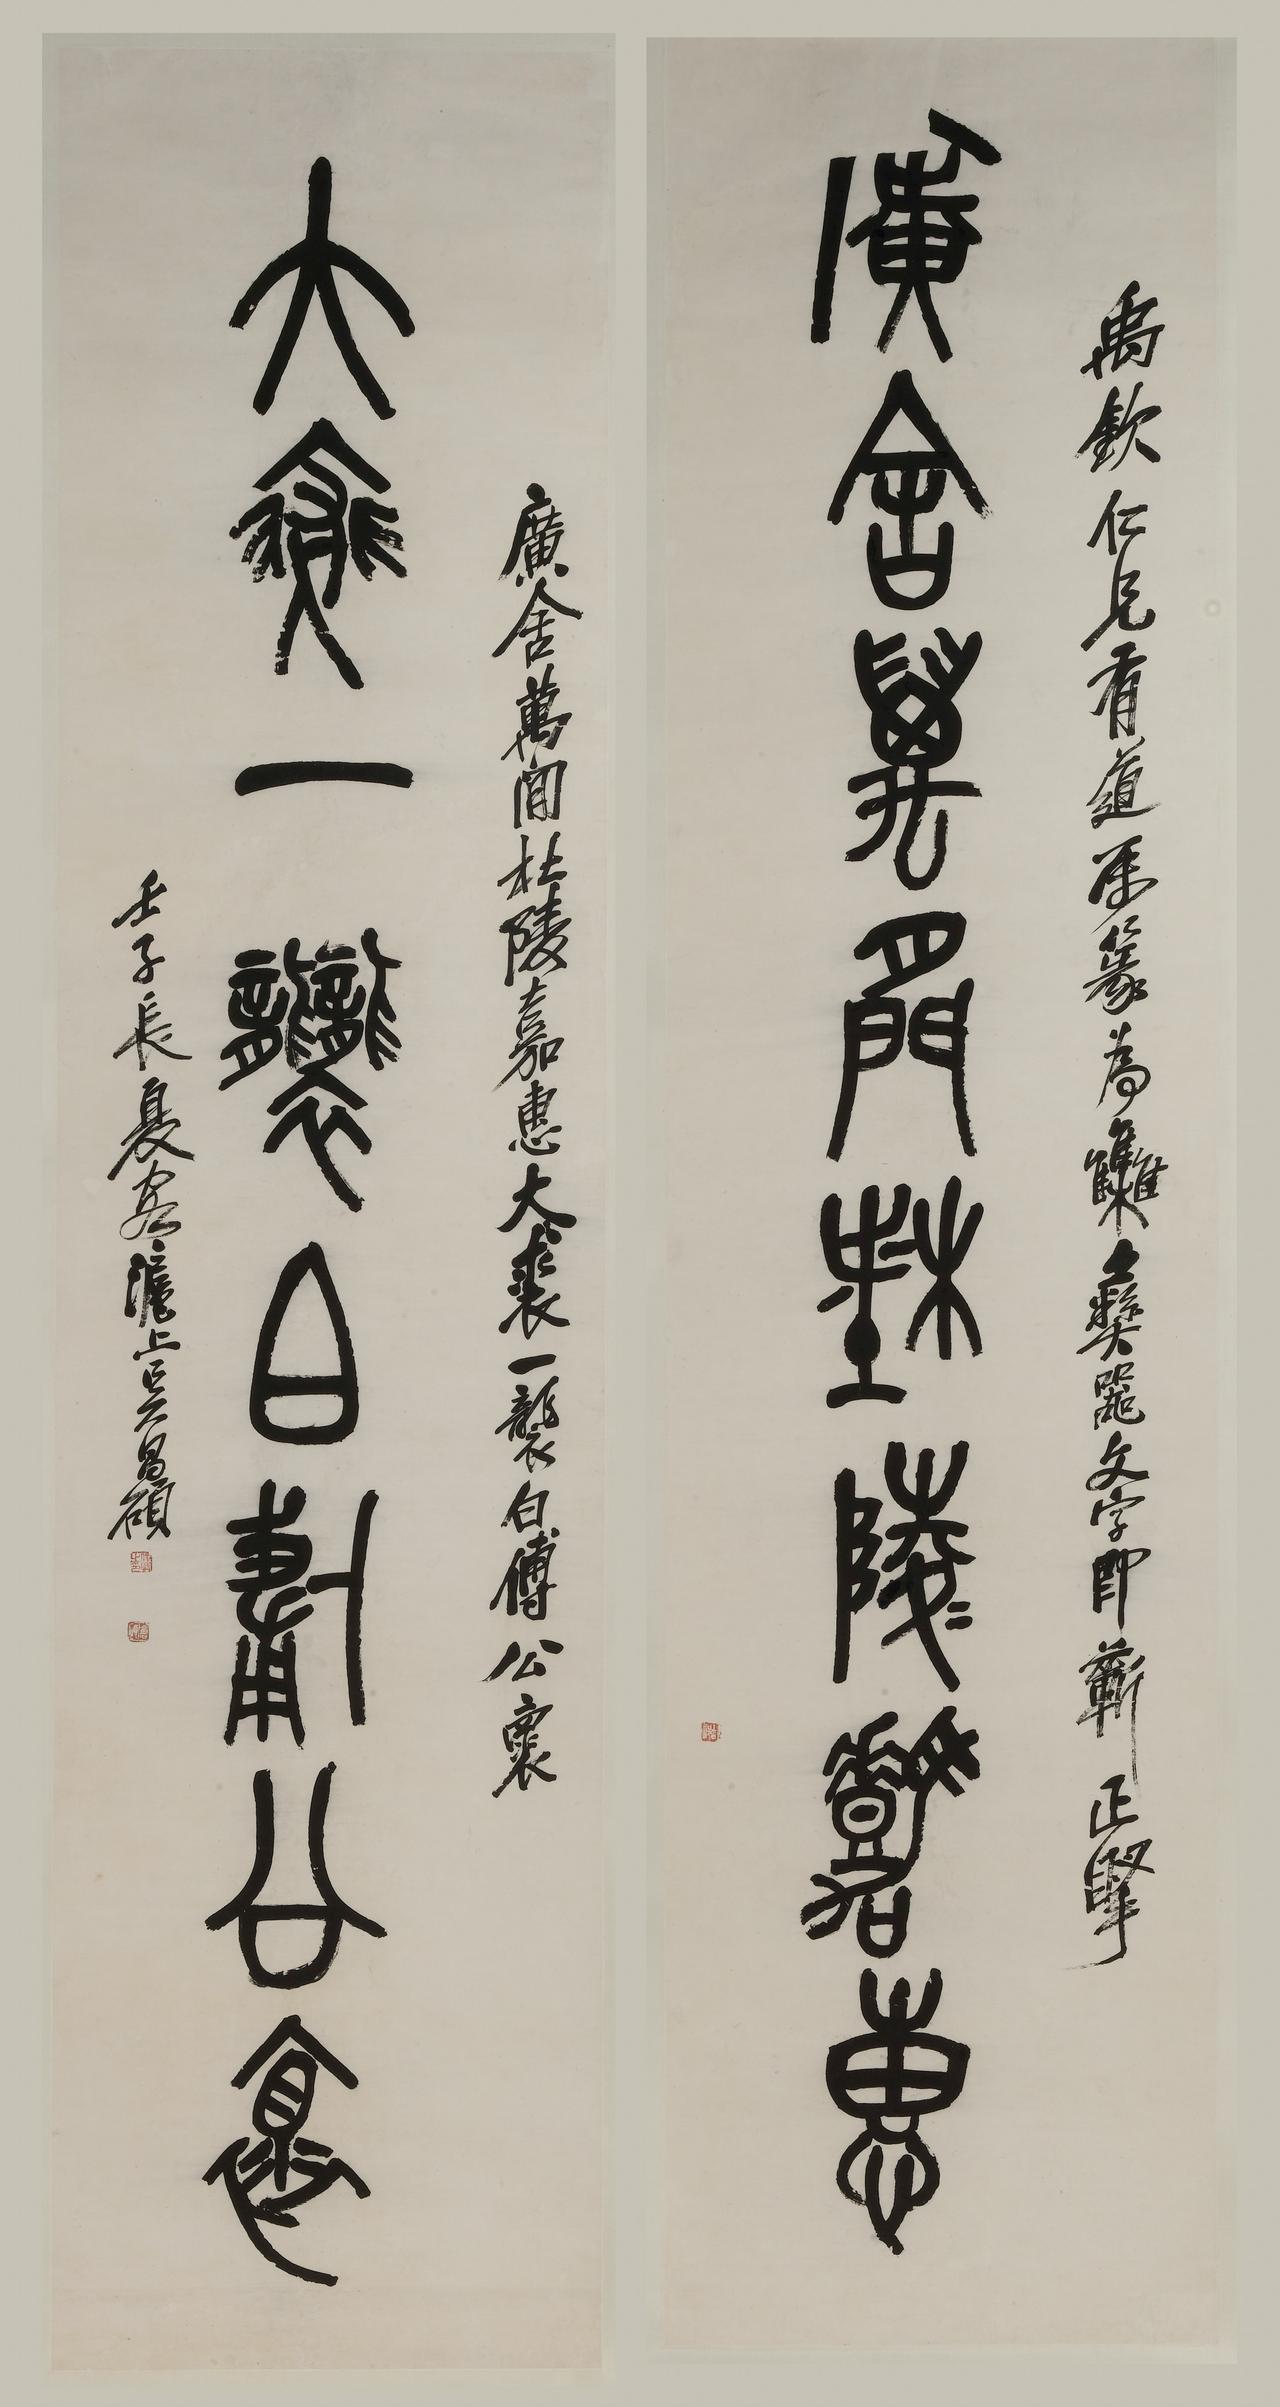 禹欽仁兄有道屬篆為集彝器文字即蘄正擘
廣舍萬間杜陵嘉惠
廣舍萬間杜陵嘉惠大裘一襲白傅公褱
大裘一襲白傅公褱
壬子長夏客滬上吳昌碩